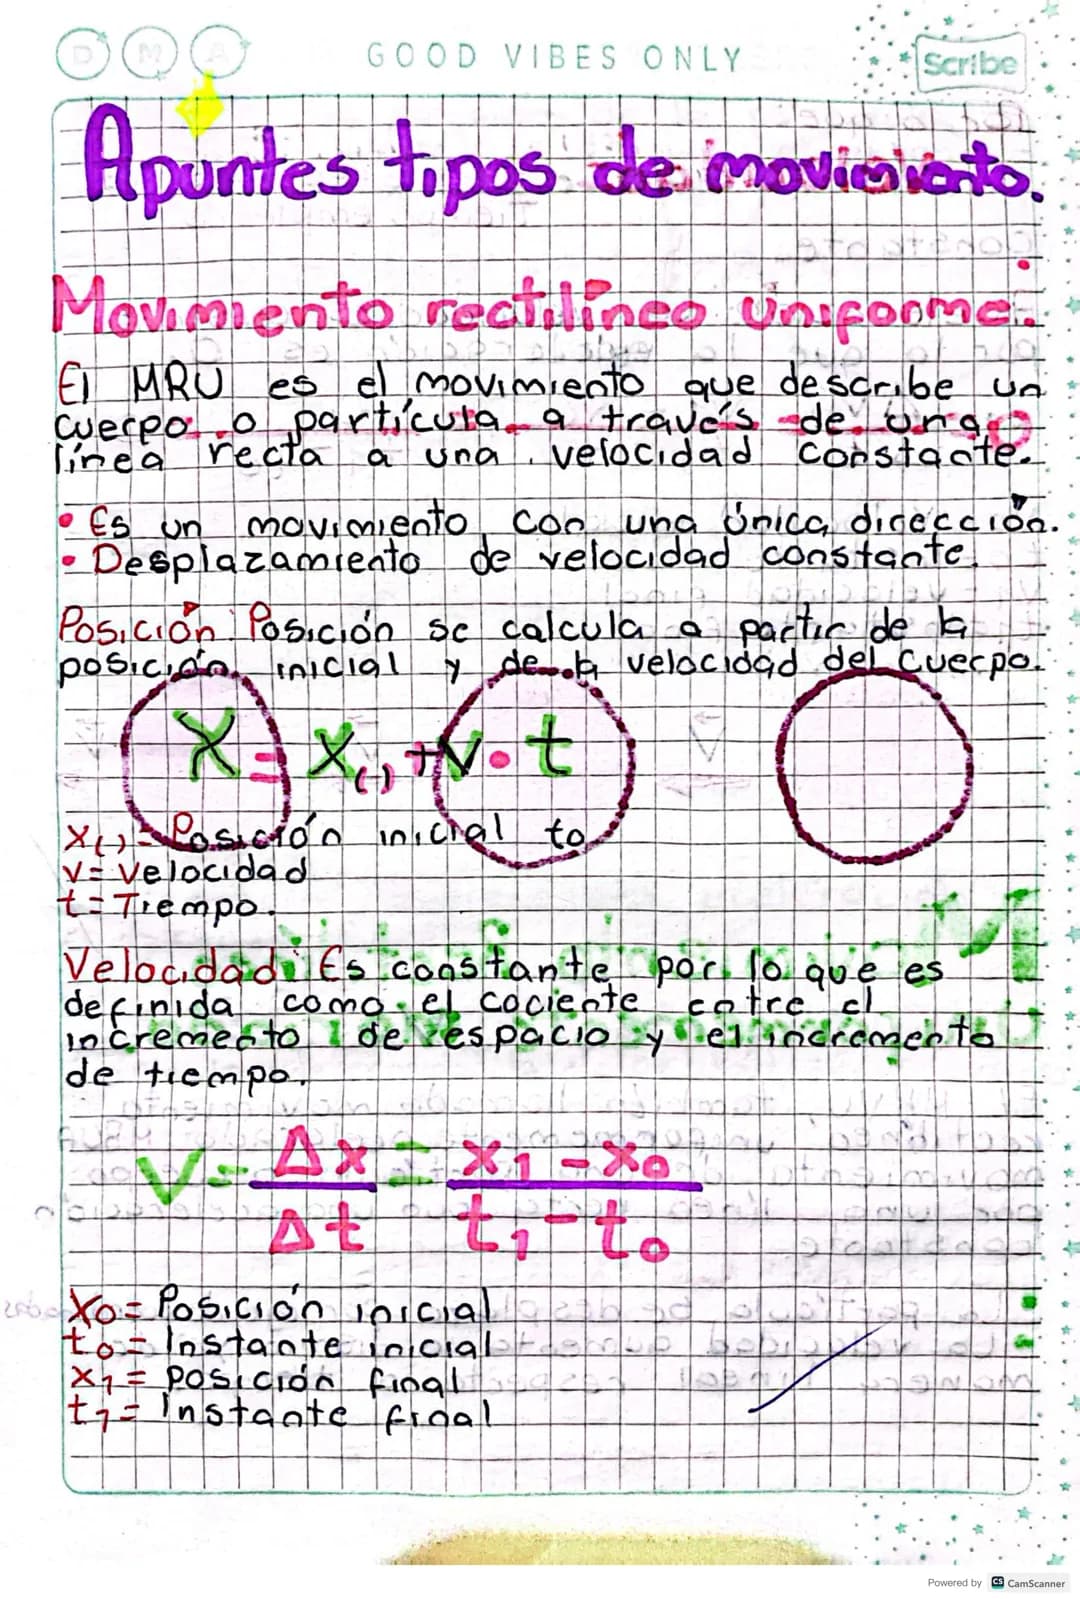 D M A GOOD VIBES ONLY Scribe
Apuntes tipos de movimiento.
Movimiento rectilíneo Uniforme.
El MRU es el movimiento que describe un
cuerpo o partícula a través de una
línea recta a una velocidad constante.
• Es un movimiento con una única dirección.
• Desplazamiento de velocidad constante.
Posición: Posición se calcula a partir de la
posición inicial y de la velocidad del cuerpo.
X = X() + V • t
X() = Posición inicial to
V = Velocidad
t = Tiempo.
Velocidad: Es constante por lo que es
definida como el cociente entre el
incremento de espacio y el incremento
de tiempo.
V = Δx = x1 - x0
Δt t1 - t0
X0 = Posición inicial
t0 = Instante inicial
X1 = posición final
t1 = Instante final
Powered by CS CamScanner